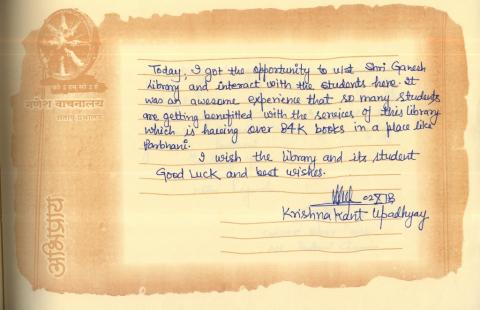 गणेश वाचनालय
अभिप्राय
Today, I got the opportunity to visit Shri Ganesh
library and interact with the students here. It
was an awesome experience that so many students
are getting benefitted with the services of this library
which is having over 84K books in a place like
Parbhani.
I wish the library and its student
Good Luck and best wishes.
Krishna Kant Upadhyay